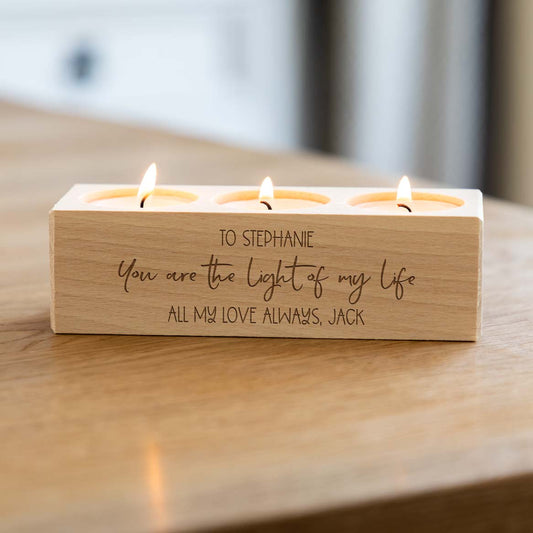 TO STEPHANIE
You are the Light of my Life
ALL MY LOVE ALWAYS, JACK